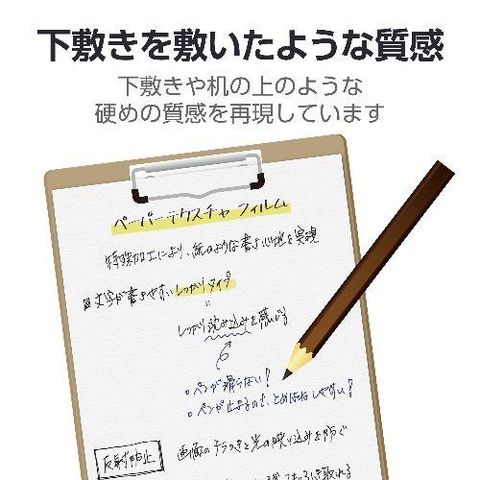 下敷きを敷いたような質感
下敷きや机の上のような
硬めの質感を再現しています
ペーパーテクスチャフィルム
特殊加工により、紙のような書き心地を実現
文字が書きやすいしっかりタイプ
しっかり沈み込みを感じる
ペンが滑らない!
ペンが止まるので、とめはねしやすい!
反射防止
画面のチラつきと光の映り込みを防ぐ